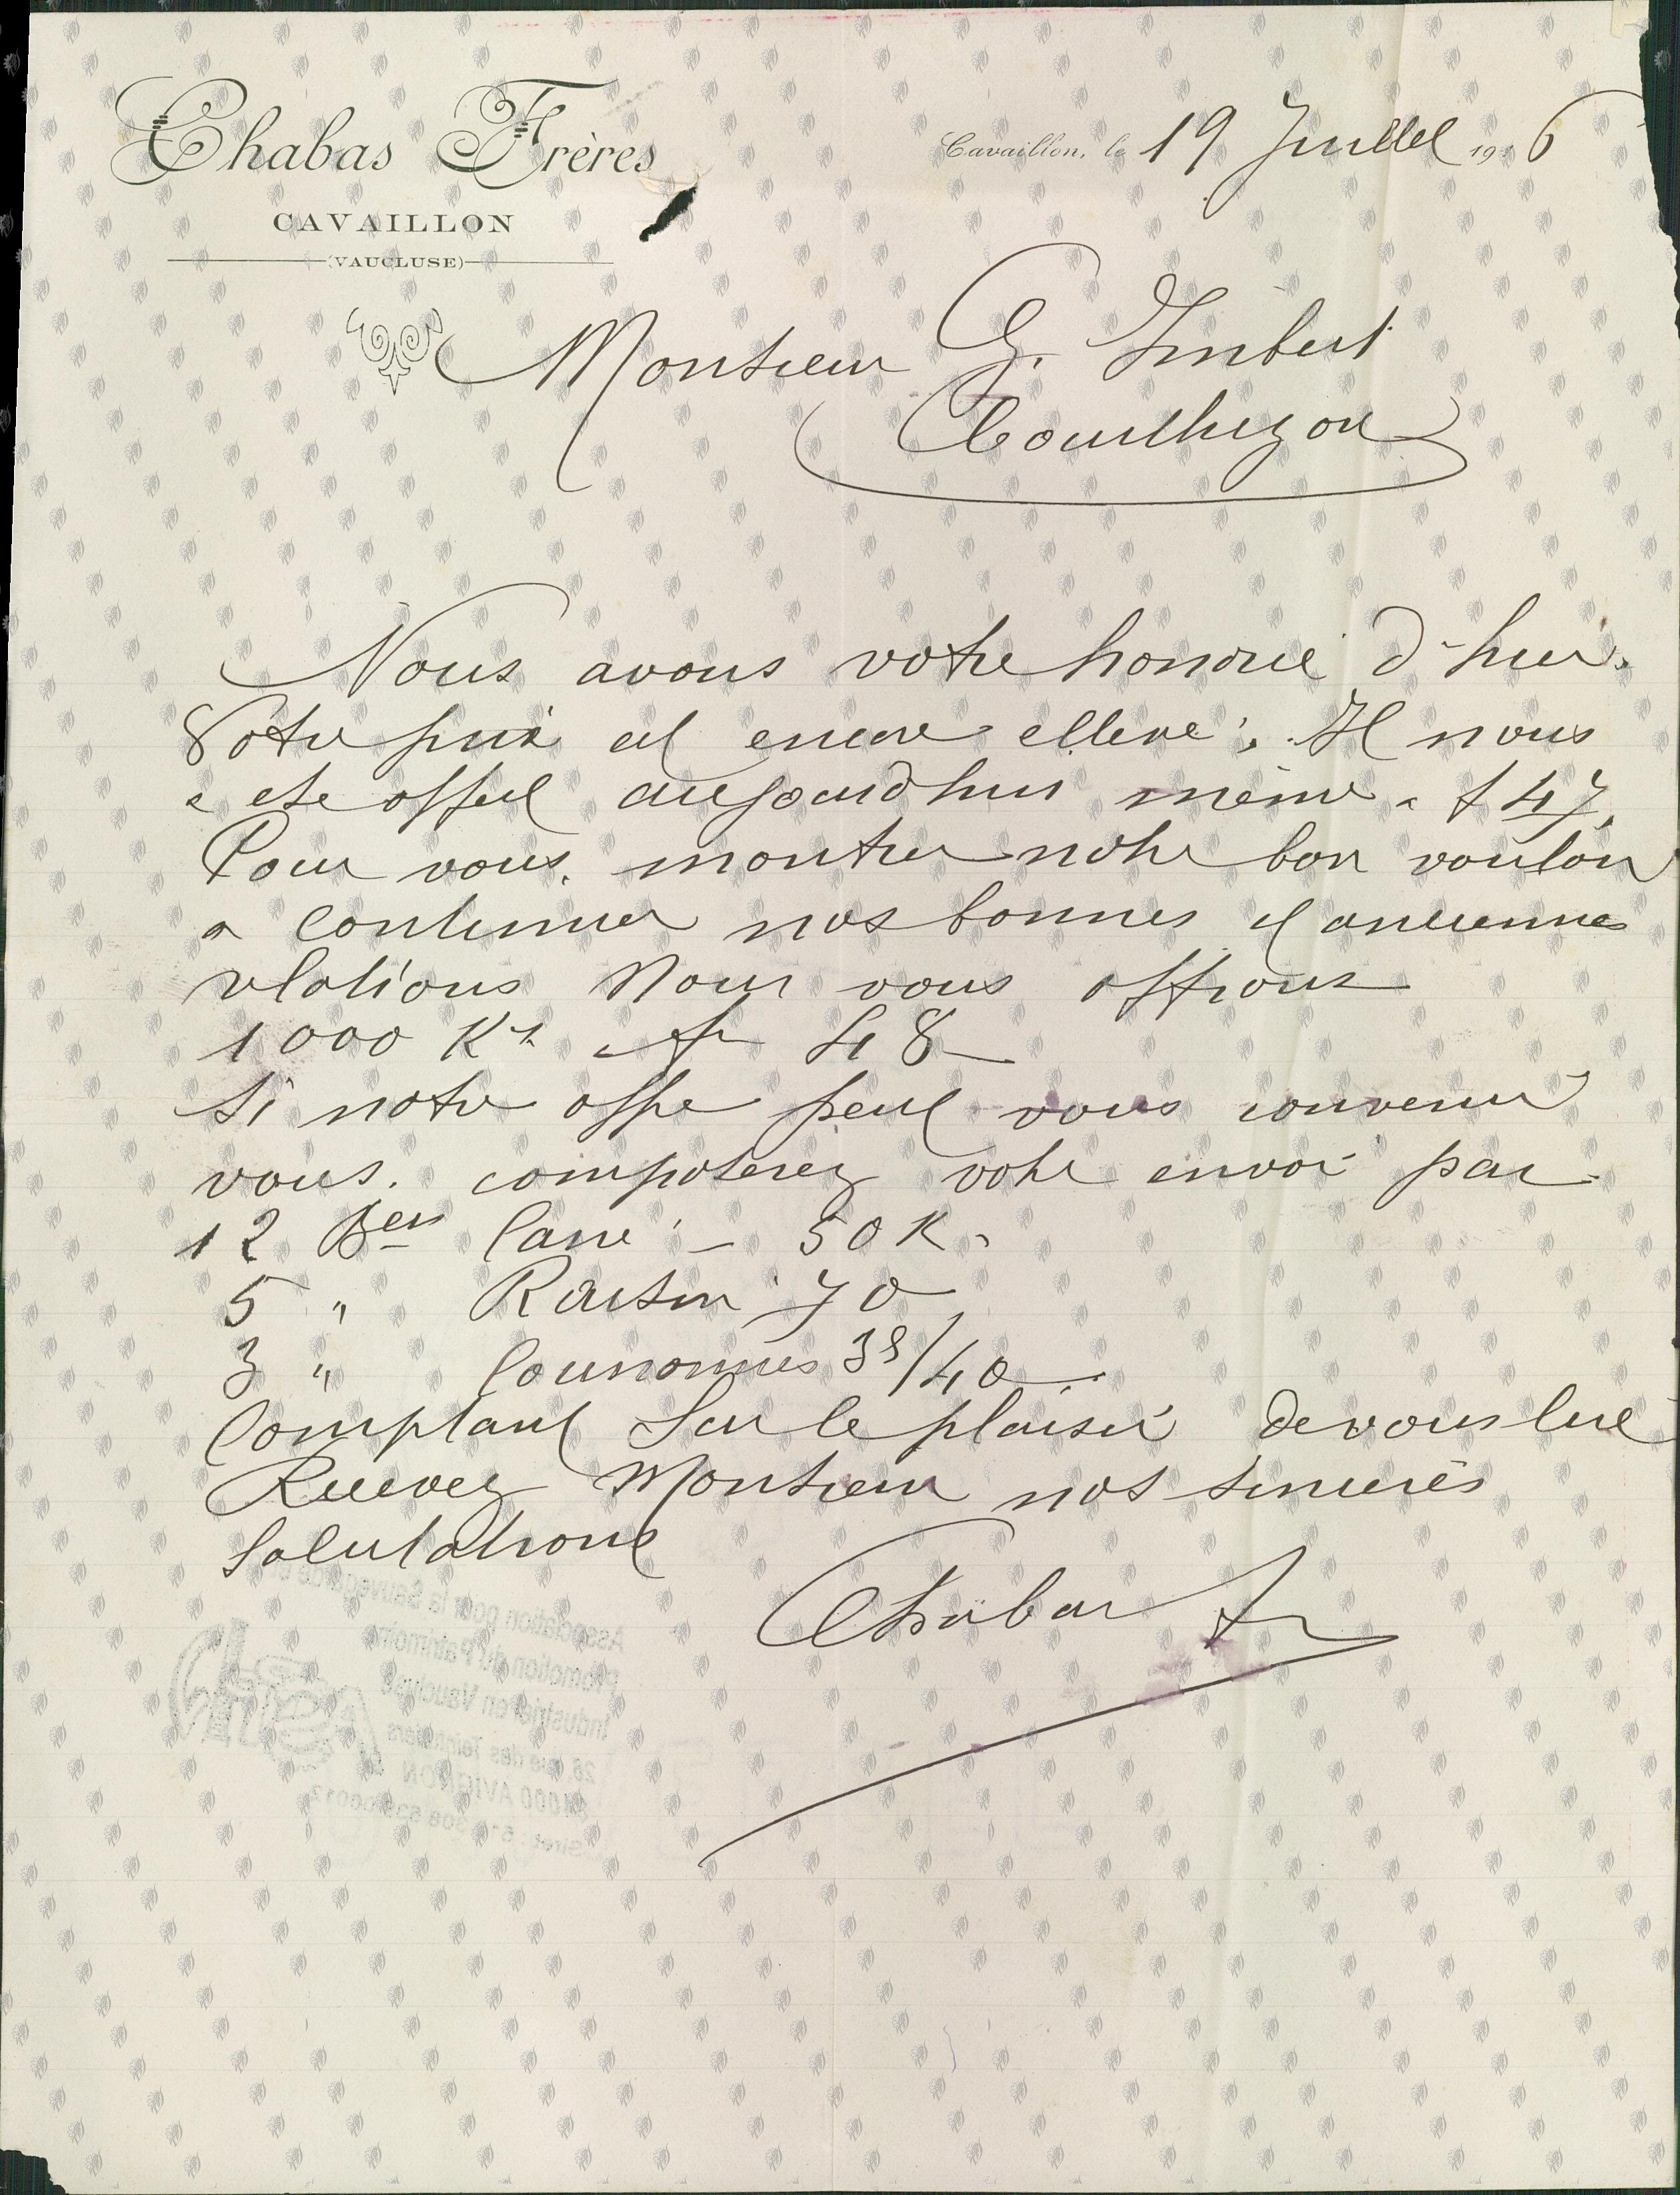 Chabas Frères
CAVAILLON
(VAUCLUSE)
Cavaillon, le 19 Juillet 1906
Monsieur G. Imbert
Courthezon
Nous avons votre honoré d'hier.
Votre prix est encore ellevé. Il nous
a ete offert aujourd'hui même a f 47.
Pour vous montrer notre bon vouloir
a continuer nos bonnes et anciennes
relations Nous vous offrons
1000 Ks a fr 48
Si notre offre peut vous convenir
vous composerez votre envoi par
12 Bes Carré - 50 K.
5 " Raisin 70
3 " Couronnes 38/40
Comptant Sur le plaisir de vous lire
Recevez Monsieur nos sinceres
Salutations
Chabas fr
Association pour la Sauvegarde et
Promotion du Patrimoine
Industriel en Vaucluse
26, rue des Teinturiers
84000 AVIGNON
Siret :